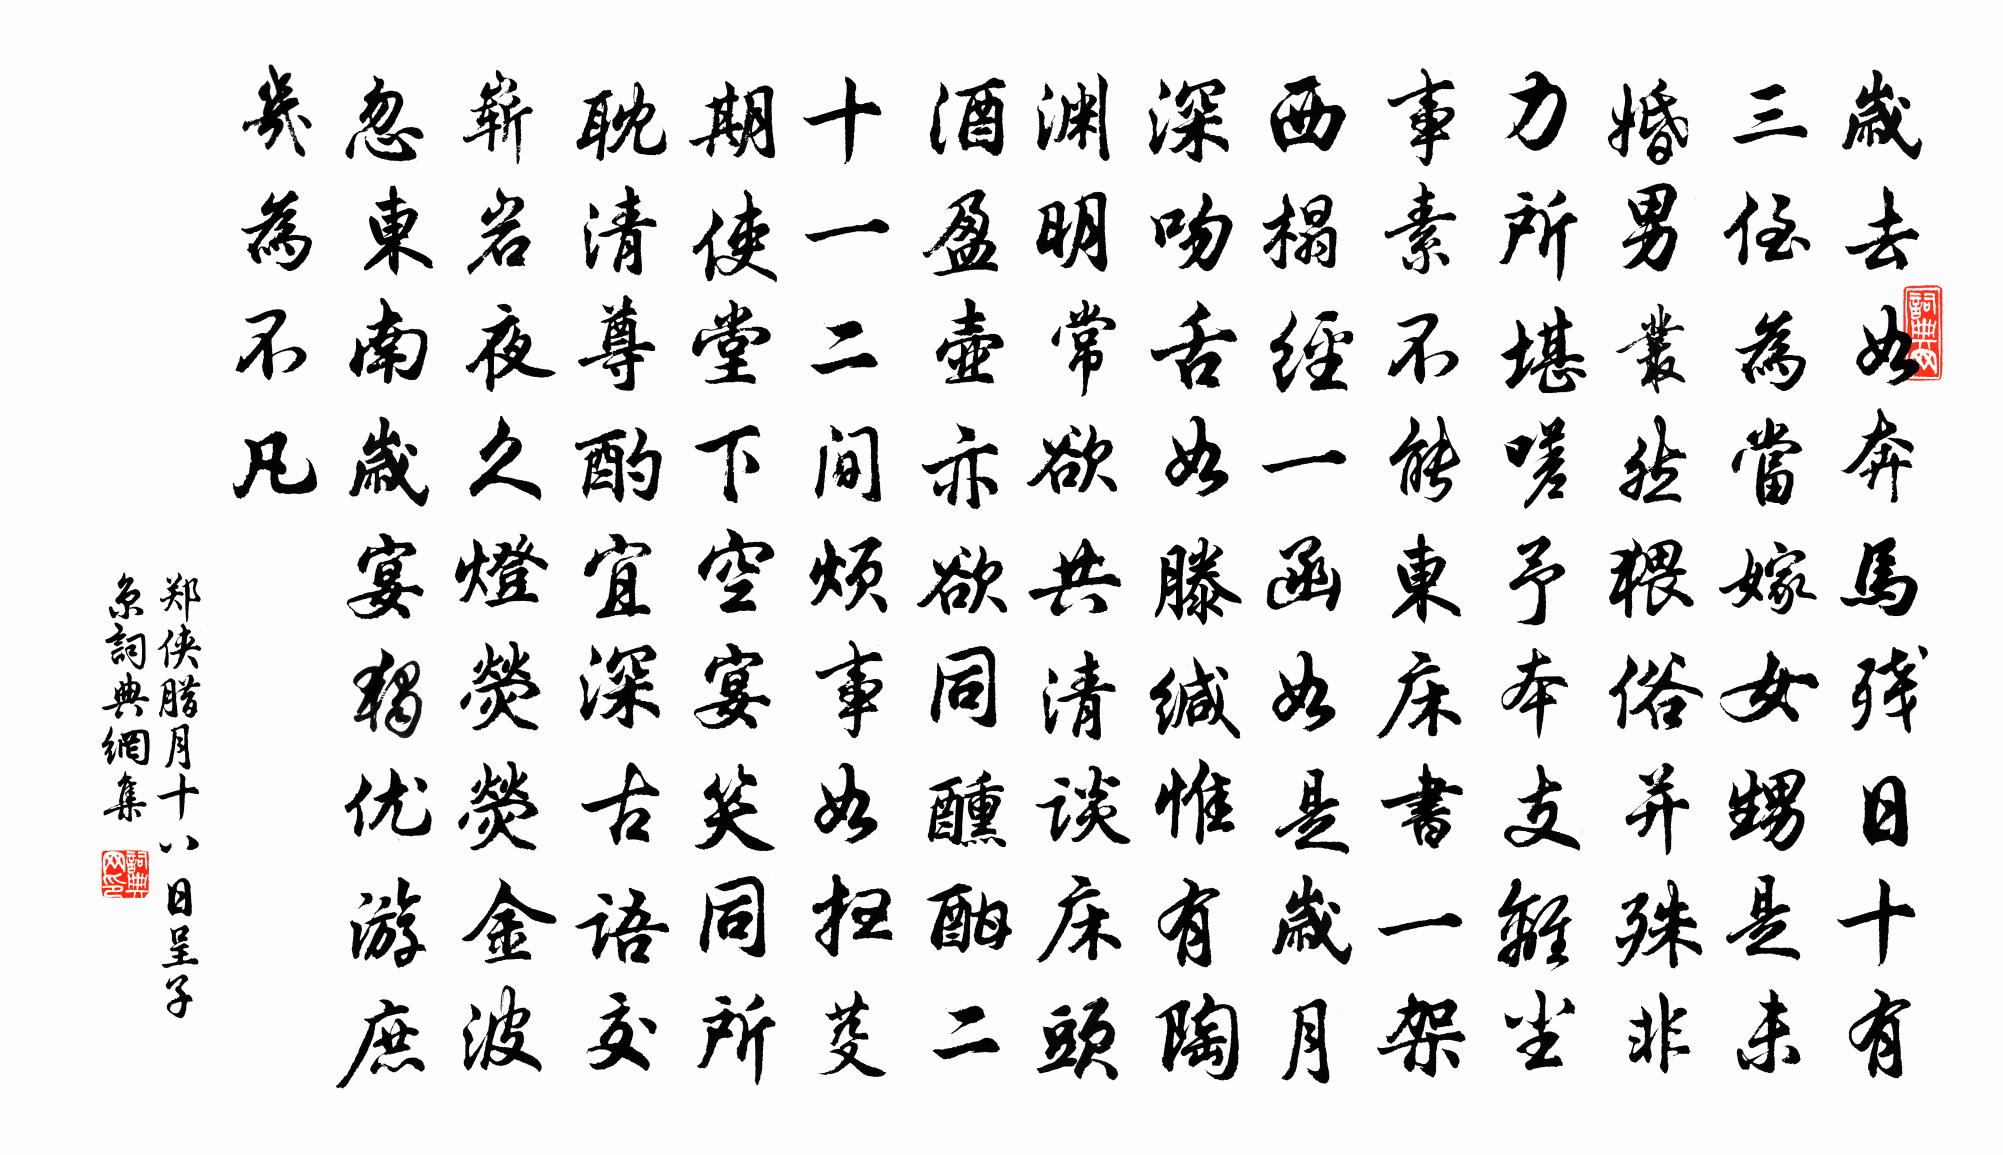 歲去如奔馬残日十有
三侄為當嫁女甥是未
婚男叢然猥俗并殊非
力所堪嗟予本支離坐
事素不能東床書一架
西榻經一函如是歲月
深吻舌如滕缄惟有陶
渊明常欲共清谈床頭
酒盈壺亦欲同醺酣二
十一二间烦事如扭芟
期使堂下空宴笑同所
耽清尊酌宜深古語交
嶄岩夜久燈熒熒金波
忽東南歲宴獨优游庶
幾為不凡
郑侠腊月十八日呈子
京詞典網集
詞典网
詞典网印